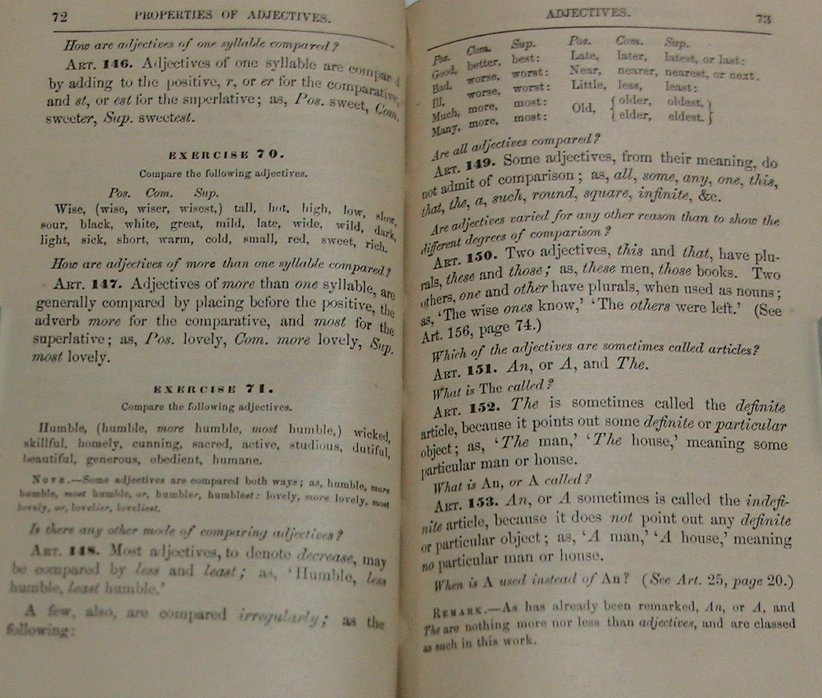 72 PROPERTIES OF ADJECTIVES.
How are adjectives of one syllable compared?
ART. 146. Adjectives of one syllable are compared
by adding to the positive, r, or er for the comparative,
and st, or est for the superlative; as, Pos. sweet, Com.
sweeter, Sup. sweetest.
EXERCISE 70.
Compare the following adjectives.
Pos. Com. Sup.
Wise, (wise, wiser, wisest,) tall, hot, high, low, slow,
sour, black, white, great, mild, late, wide, wild, dark,
light, sick, short, warm, cold, small, red, sweet, rich.
How are adjectives of more than one syllable compared?
ART. 147. Adjectives of more than one syllable, are
generally compared by placing before the positive, the
adverb more for the comparative, and most for the
superlative; as, Pos. lovely, Com. more lovely, Sup.
most lovely.
EXERCISE 71.
Compare the following adjectives.
Humble, (humble, more humble, most humble,) wicked,
skillful, homely, cunning, sacred, active, studious, dutiful,
beautiful, generous, obedient, humane.
NOTE.—Some adjectives are compared both ways; as, humble, more
humble, most humble, or, humbler, humblest: lovely, more lovely, most
lovely, or, lovelier, loveliest.
Is there any other mode of comparing adjectives?
ART. 148. Most adjectives, to denote decrease, may
be compared by less and least; as, ‘Humble, less
humble, least humble.’
A few, also, are compared irregularly; as the
following:
ADJECTIVES. 73
Pos. Com. Sup. Pos. Com. Sup.
Good, better, best: Late, later, latest, or last:
Bad, worse, worst: Near, nearer, nearest, or next.
Ill, worse, worst: Little, less, least:
Much, more, most: Old, { older, oldest, }
Many, more, most: { elder, eldest. }
Are all adjectives compared?
ART. 149. Some adjectives, from their meaning, do
not admit of comparison; as, all, some, any, one, this,
that, the, a, such, round, square, infinite, &c.
Are adjectives varied for any other reason than to show the
different degrees of comparison?
ART. 150. Two adjectives, this and that, have plu-
rals, these and those; as, these men, those books. Two
others, one and other have plurals, when used as nouns;
as, ‘The wise ones know,’ ‘The others were left.’ (See
Art. 156, page 74.)
Which of the adjectives are sometimes called articles?
ART. 151. An, or A, and The.
What is The called?
ART. 152. The is sometimes called the definite
article, because it points out some definite or particular
object; as, ‘The man,’ ‘The house,’ meaning some
particular man or house.
What is An, or A called?
ART. 153. An, or A sometimes is called the indefi-
nite article, because it does not point out any definite
or particular object; as, ‘A man,’ ‘A house,’ meaning
no particular man or house.
When is A used instead of An? (See Art. 25, page 20.)
REMARK.—As has already been remarked, An, or A, and
The are nothing more nor less than adjectives, and are classed
as such in this work.